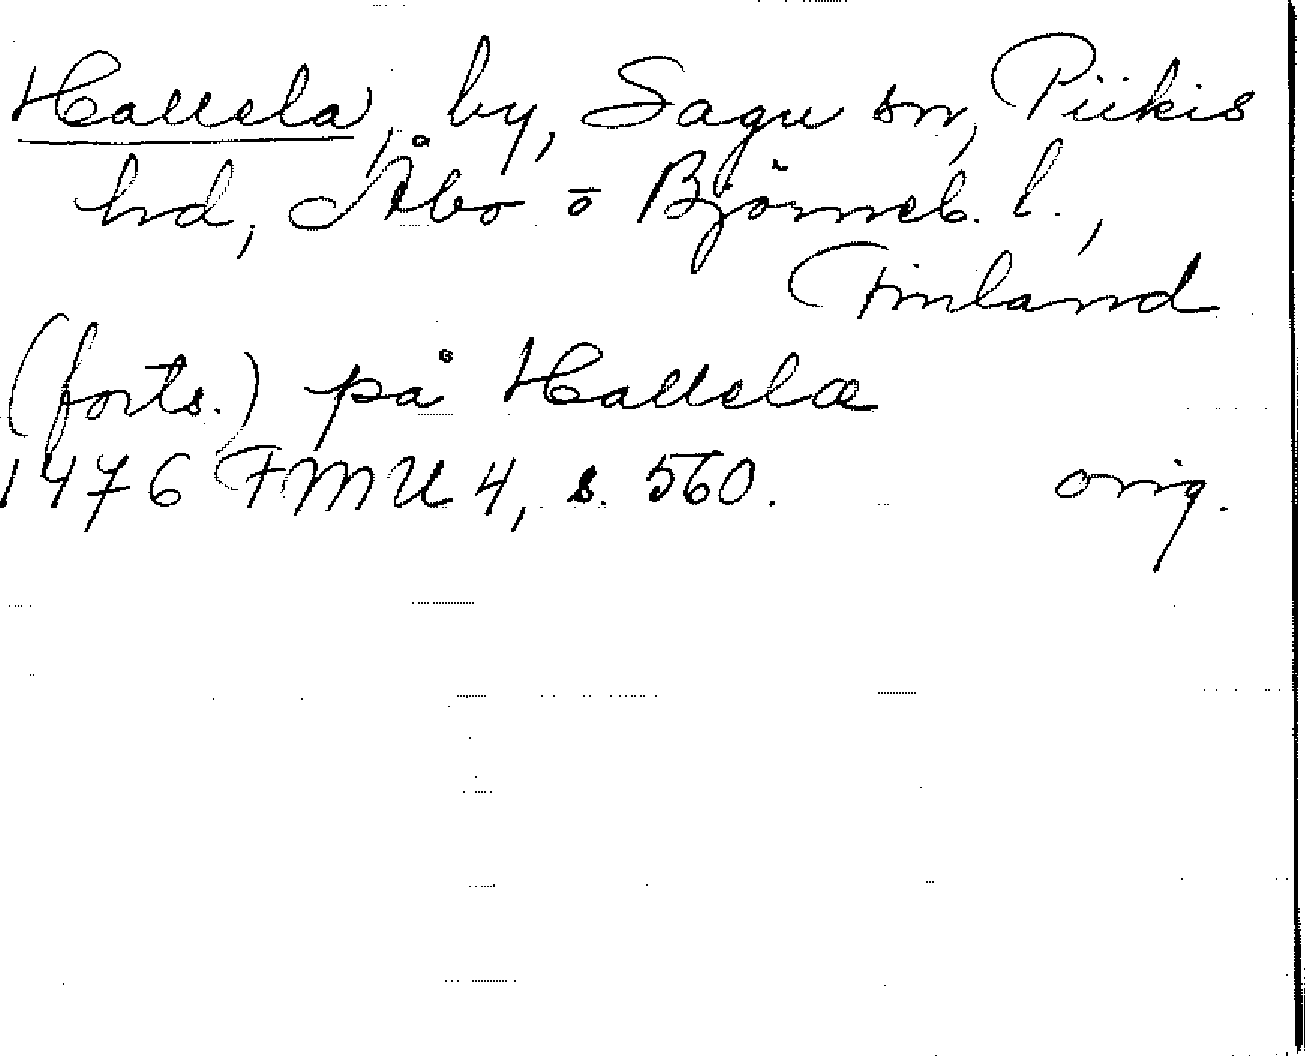 Hallela, by, Sagu sn, Piikis
hd, Åbo o Björneb. l.,
Finland
(forts.) på Hallelæ
1476 FMU 4, s. 560. orig.